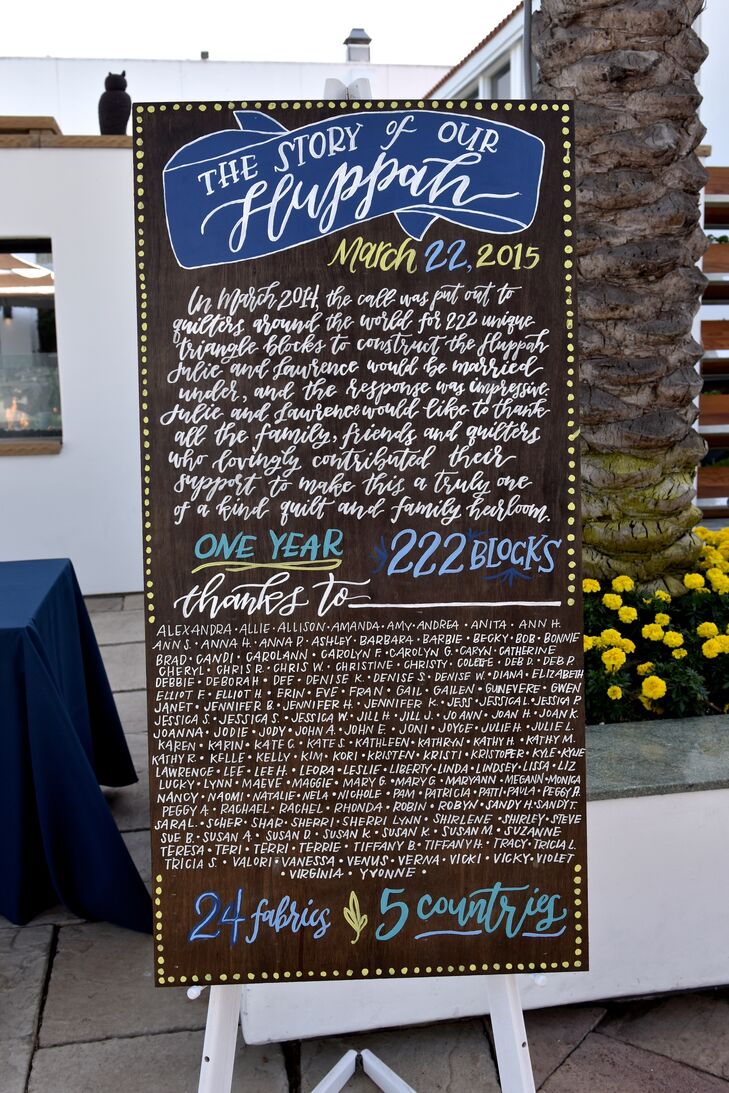 THE STORY of OUR
Huppah
March 22, 2015
In March 2014, the call was put out to
quilters around the world for 222 unique
triangle blocks to construct the Huppah
Julie and Lawrence would be married
under, and the response was impressive.
Julie and Lawrence would like to thank
all the family, friends and quilters
who lovingly contributed their
support to make this a truly one
of a kind quilt and family heirloom.
ONE YEAR 222 BLOCKS
thanks to
ALEXANDRA • ALLIE • ALLISON • AMANDA • AMY • ANDREA • ANITA • ANN H.
ANN S. • ANNA H. • ANNA P. • ASHLEY • BARBARA • BARBIE • BECKY • BOB • BONNIE
BRAD • CANDI • CAROLANN • CAROLYN F. • CAROLYN G. • CARYN • CATHERINE
CHERYL • CHRIS R. • CHRIS W. • CHRISTINE • CHRISTY • DEB D. • DEB P.
DEBBIE • DEBORAH • DEE • DENISE K. • DENISE S. • DENISE W. • DIANA • ELIZABETH
ELLIOT F. • ELLIOT H. • ERIN • EVE • FRAN • GAIL • GAILEN • GUINEVERE • GWEN
JANET • JENNIFER B. • JENNIFER H. • JENNIFER K. • JESS • JESSICA L. • JESSICA P.
JESSICA S. • JESSICA S. • JESSICA W. • JILL H. • JILL J. • JO ANN • JOAN H. • JOAN K.
JOANNA • JODIE • JODY • JOHN A. • JOHN E. • JONI • JOYCE • JULIE H. • JULIE L.
KAREN • KARIN • KATE C. • KATE S. • KATHLEEN • KATHRYN • KATHY H. • KATHY M.
KATHY R. • KELLE • KELLY • KIM • KORI • KRISTEN • KRISTI • KRISTOFER • KYLE • KYLIE
LAWRENCE • LEE • LEE H. • LEORA • LESLIE • LIBERTY • LINDA • LINDSEY • LISSA • LIZ
LUCKY • LYNN • MAEVE • MAGGIE • MARY G. • MARY G. • MARYANN • MEGANN • MONICA
NANCY • NAOMI • NATALIE • NELA • NICHOLE • PAM • PATRICIA • PATTI • PAULA • PEGGY A.
PEGGY A. • RACHAEL • RACHEL • RHONDA • ROBIN • ROBYN • SANDY H. • SANDY T.
SARA L. • SCHER • SHAR • SHERRI • SHERRI LYNN • SHIRLENE • SHIRLEY • STEVE
SUE B. • SUSAN A. • SUSAN D. • SUSAN K. • SUSAN K. • SUSAN M. • SUZANNE
TERESA • TERI • TERRI • TERRIE • TIFFANY B. • TIFFANY H. • TRACY • TRICIA L.
TRICIA S. • VALORI • VANESSA • VENUS • VERNA • VICKI • VICKY • VIOLET
• VIRGINIA • YVONNE •
24 fabrics 5 countries